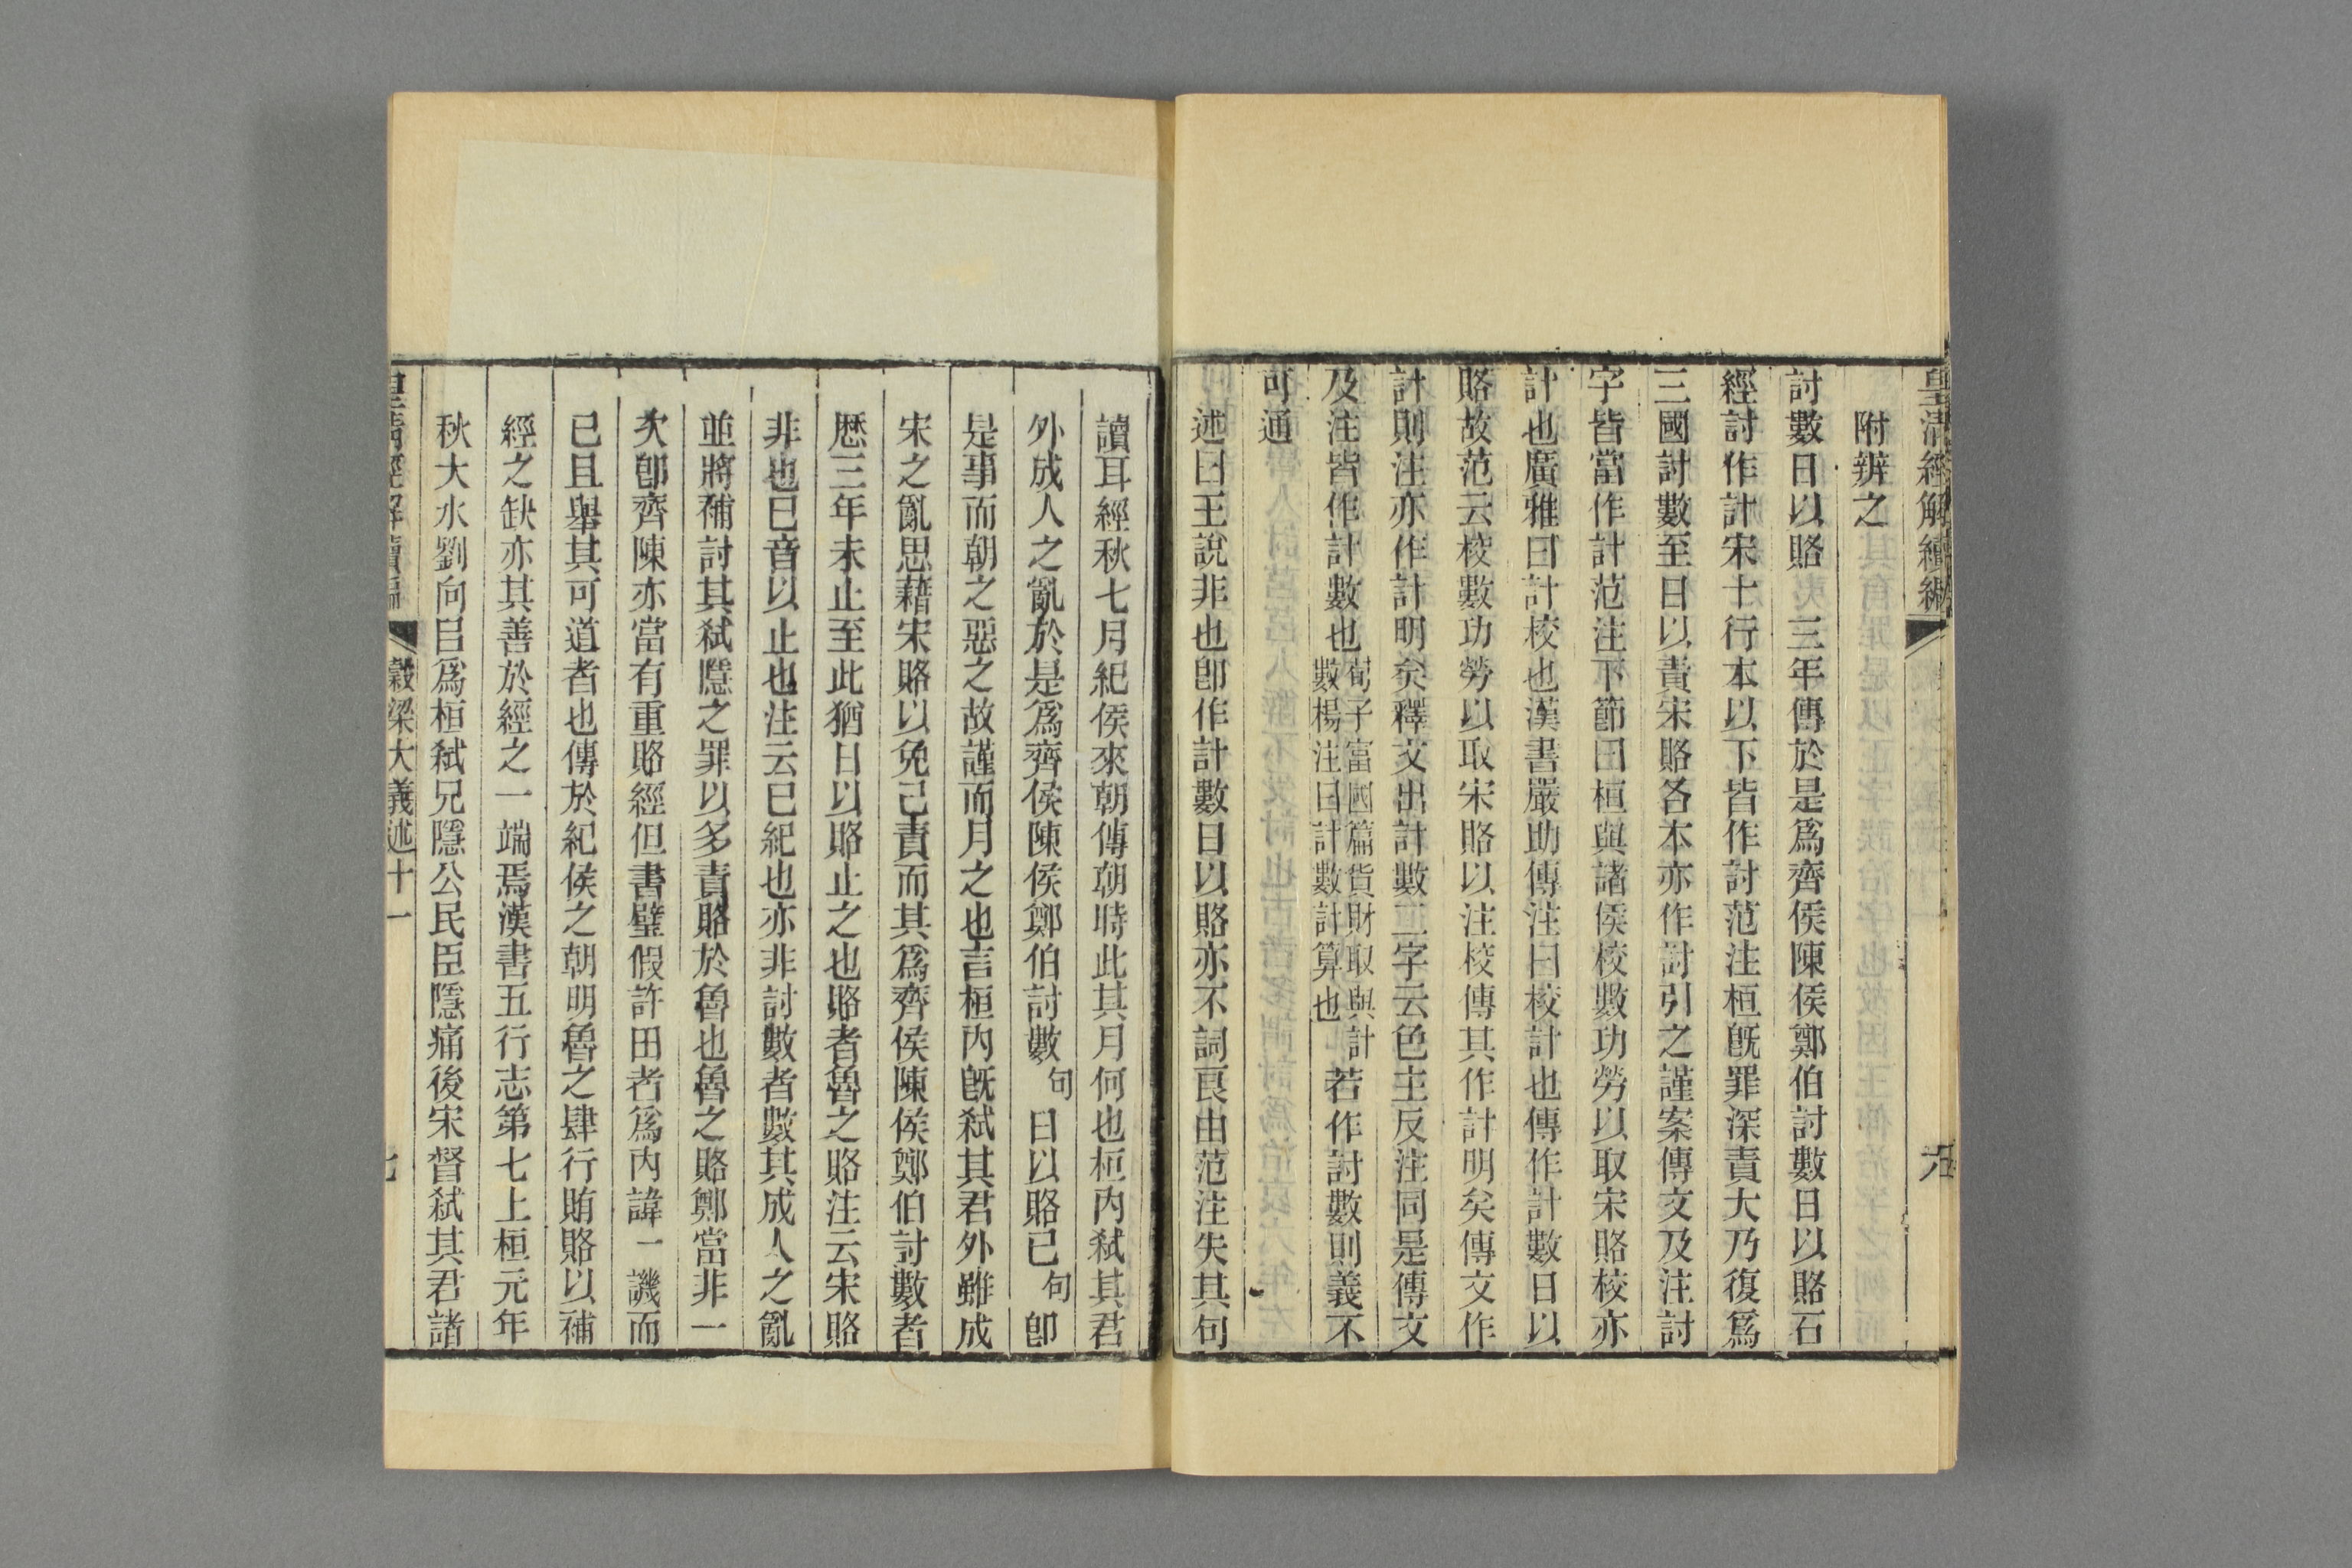 皇清經解續編
附辨之
討數日以賂 三年傳於是爲齊侯陳侯鄭伯討數日以賂石
經討作計宋十行本以下皆作討范注桓旣罪深責大乃復爲
三國討數至日以責宋賂各本亦作討引之謹案傳文及注討
字皆當作計范注下節曰桓與諸侯校數功勞以取宋賂校亦
計也廣雅曰計校也漢書嚴助傳注曰校計也傳作計數日以
賂故范云校數功勞以取宋賂以注校傳其作計明矣傳文作
計則注亦作計明矣釋文出計數二字云色主反注同是傳文
及注皆作計數也荀子富國篇貨財取與計數楊注曰計數計算也若作討數則義不
可通
述曰王說非也卽作計數日以賂亦不詞良由范注失其句
讀耳經秋七月紀侯來朝傳朝時此其月何也桓內弒其君
外成人之亂於是爲齊侯陳侯鄭伯討數句日以賂已句卽
是事而朝之惡之故謹而月之也言桓內旣弒其君外雖成
宋之亂思藉宋賂以免己責而其爲齊侯陳侯鄭伯討數者
歷三年未止至此猶日以賂止之也賂者魯之賂注云宋賂
非也已音以止也注云已紀也亦非討數者數其成人之亂
並將補討其弒隱之罪以多責賂於魯也魯之賂鄭當非一
次卽齊陳亦當有重賂經但書璧假許田者爲內諱一譏而
已且舉其可道者也傳於紀侯之朝明魯之肆行賄賂以補
經之缺亦其善於經之一端焉漢書五行志第七上桓元年
秋大水劉向曰爲桓弒兄隱公民臣隱痛後宋督弒其君諸
皇清經解續編 穀梁大義述十一 七